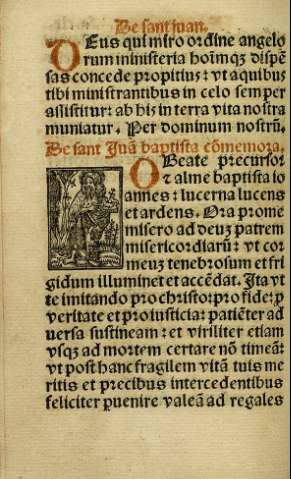 De sant juan.
DEus qui miro ordine angelo
rum ministeria hoĩmqʒ dispẽ
sas concede propitius: vt a quibus
tibi ministrantibus in celo semper
assistitur: ab his in terra vita nostra
muniatur. Per dominum nostrũ.
De sant Juã baptista cõmemora.
O Beate precursor
et alme baptista io
annes: lucerna lucens
et ardens. Ora pro me
misero ad deuʒ patrem
misericordiarũ: vt cor
meuʒ tenebrosum et fri
gidum illuminet et accẽdat. Ita vt
te imitando pro christo: pro fide: ꝓ
veritate et pro iusticia: patiẽter ad
uersa sustineam: et viriliter etiam
vsqʒ ad mortem certare nõ timeã:
vt post hanc fragilem vitã tuis me
ritis et precibus intercedentibus
feliciter ꝑuenire valeã ad regales